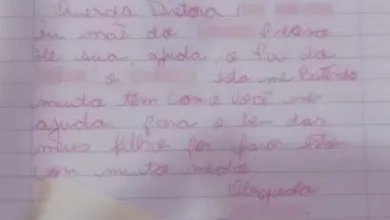 Querida Diretora
eu mãe do preciso
de sua ajuda, o Pai do
e esta me Batendo
muito têm como você me
ajuda para o bem dos
meus filho por favor estou
com muito medo.
Obrigada